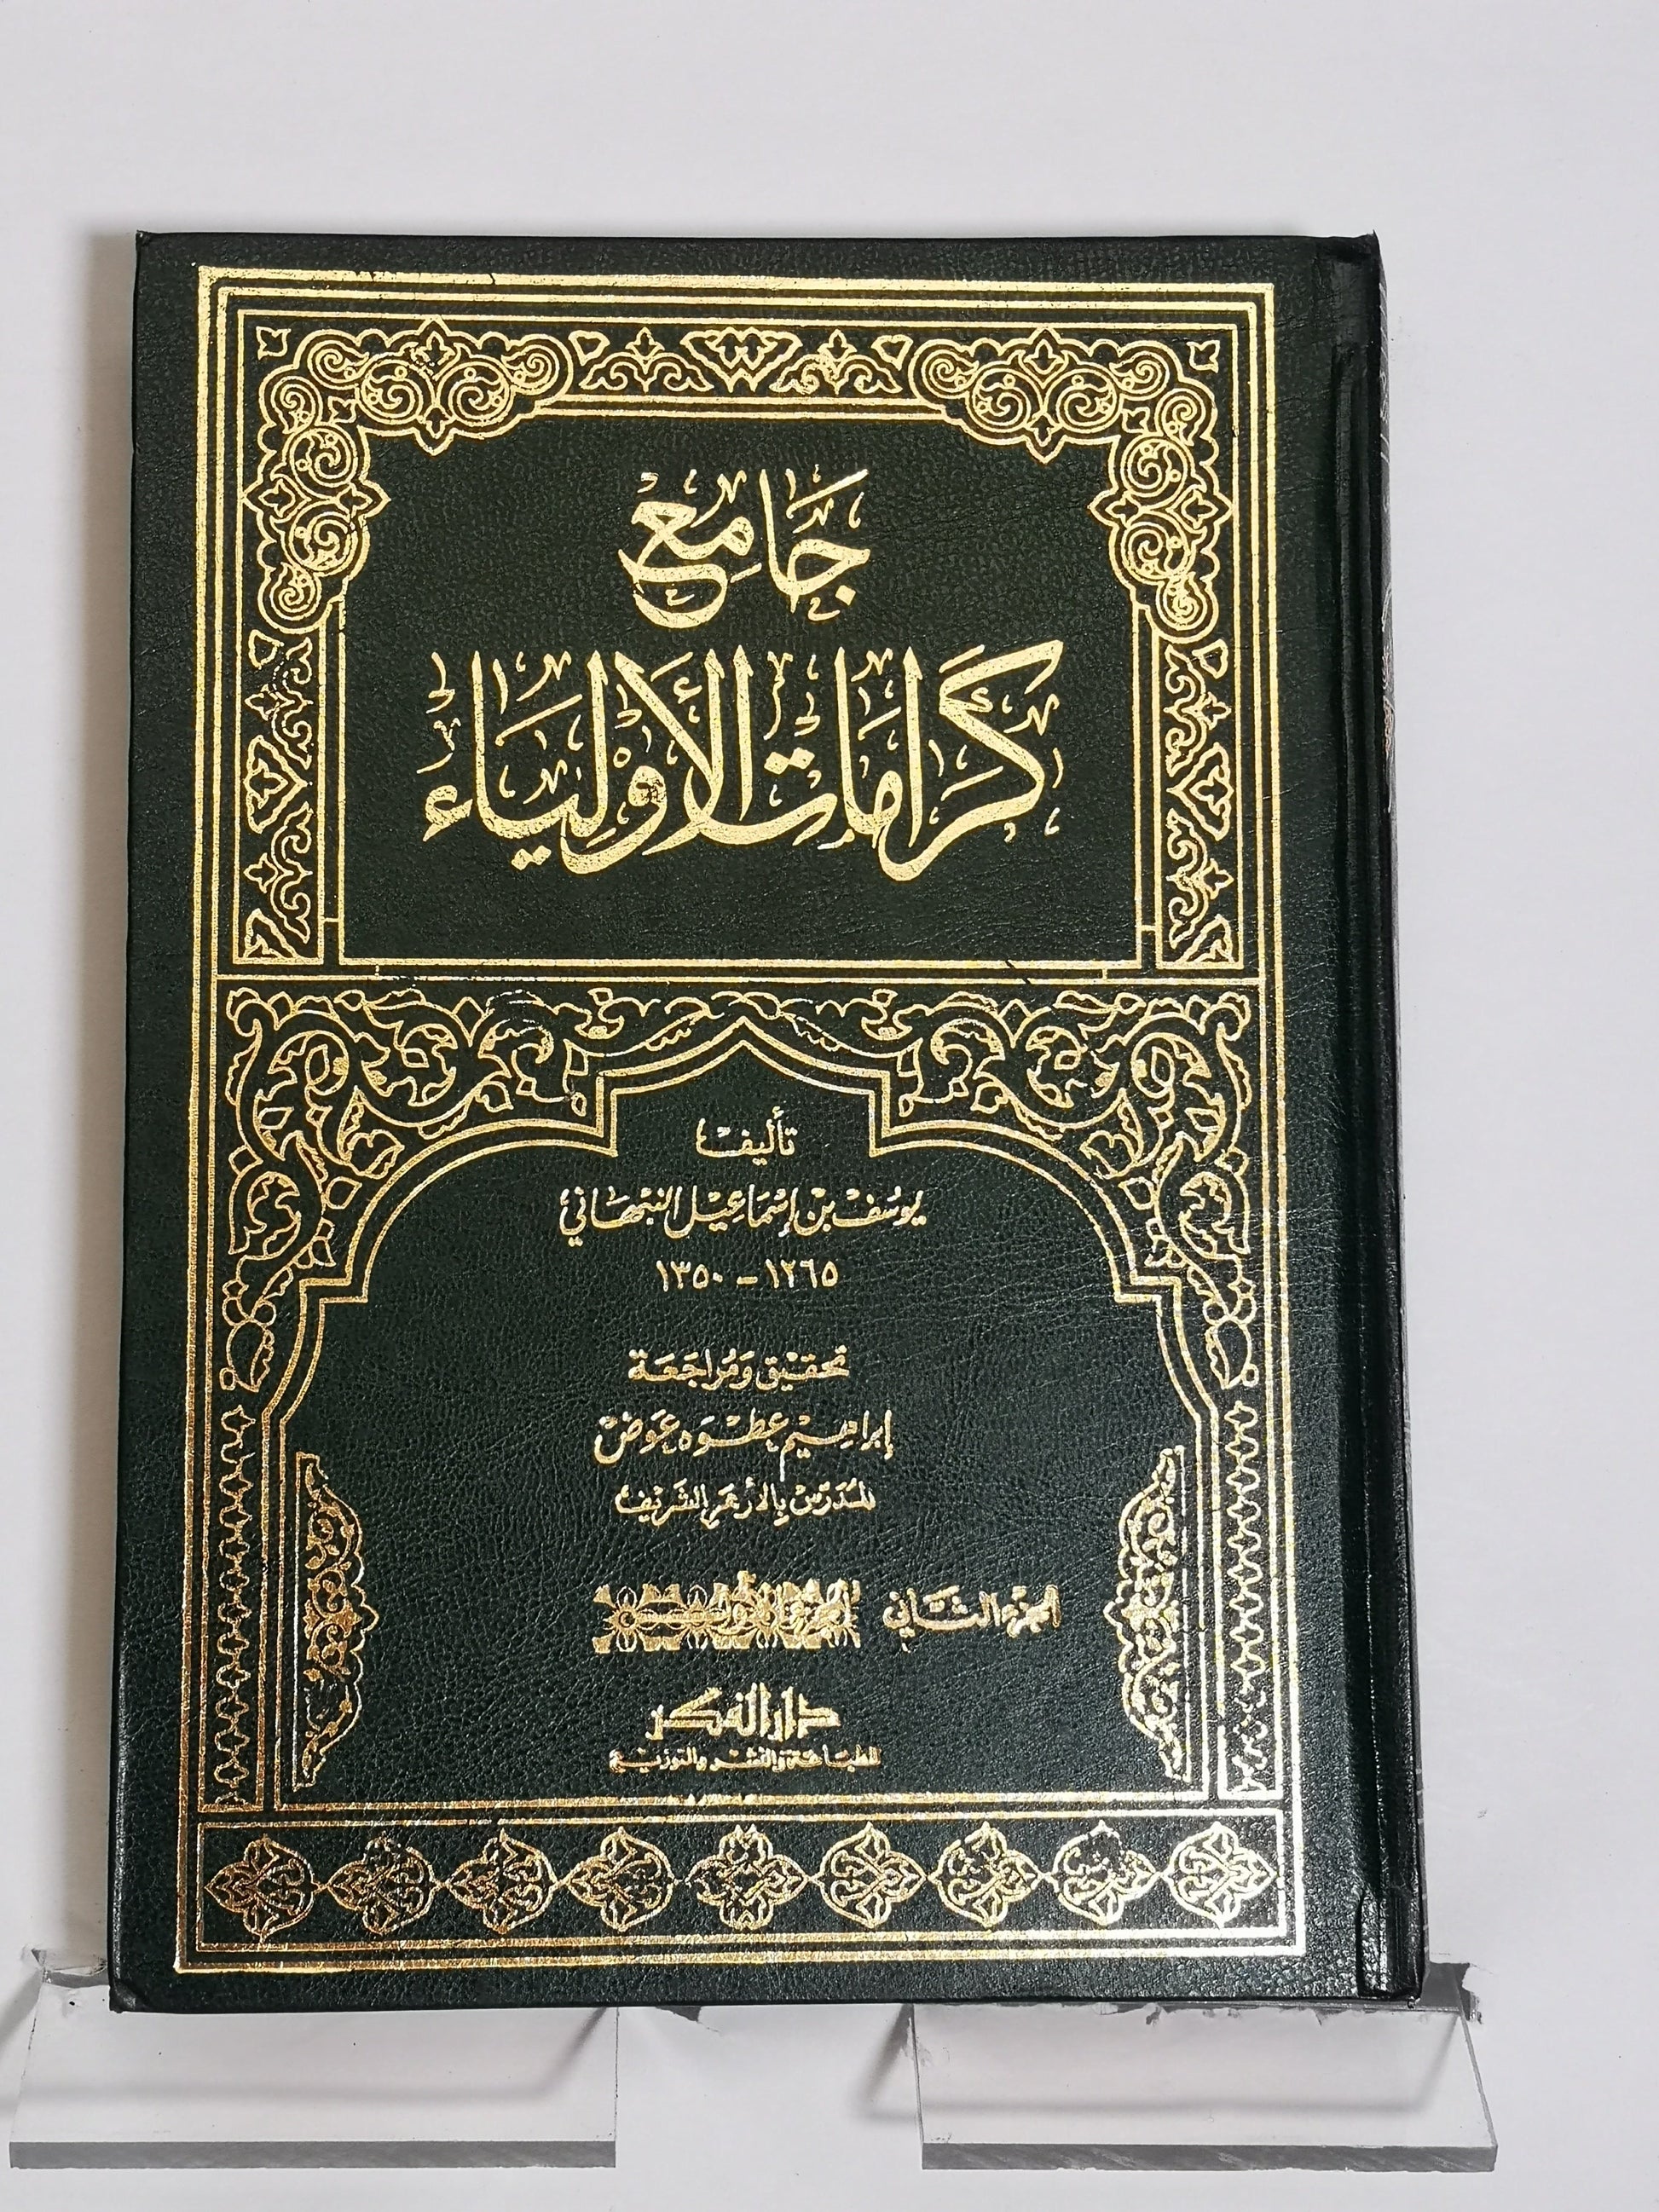 جَامِع
كَرَامَات الأَوْلِيَاء
تأليف
يوسُف بن إسْمَاعيل النبهَاني
١٢٦٥ - ١٣٥٠
تحقيق وَمُراجَعَة
إبراهيم عطوَه عوَض
المدَرّس بالأزهَر الشريف
الجزء الثَّاني
دار الفكر
للطبَاعة والنشر والتوزيع